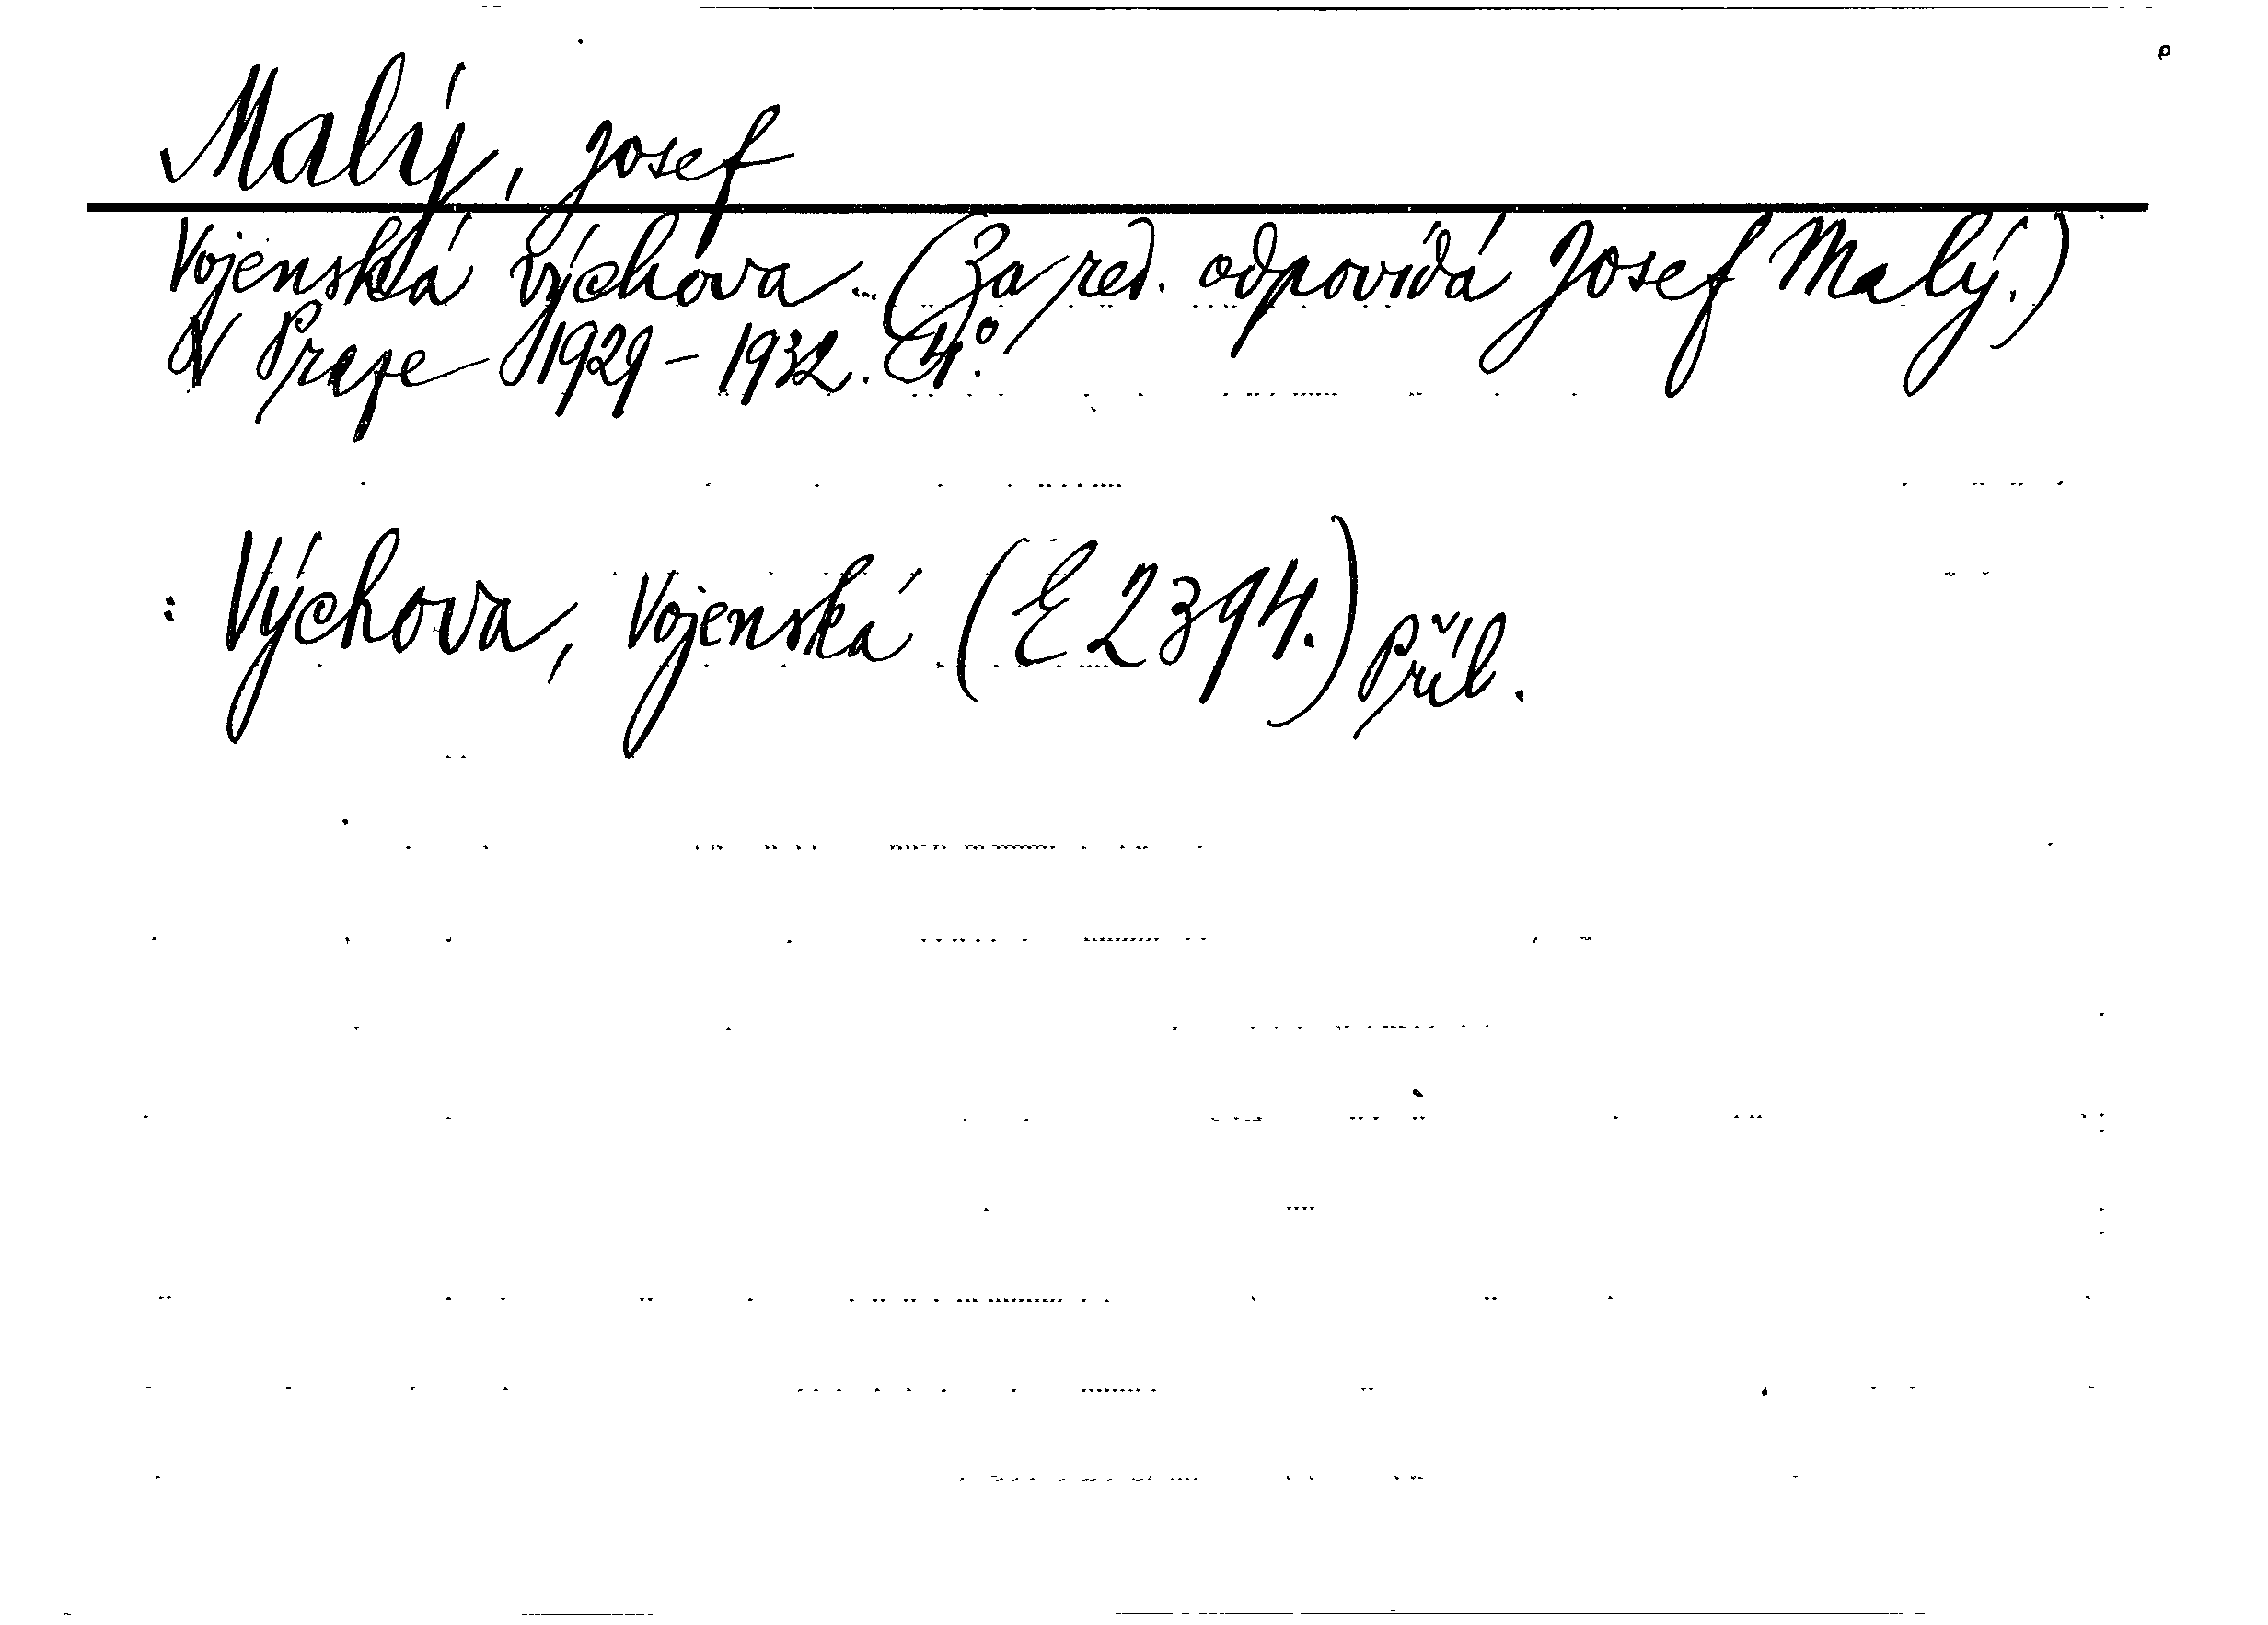 Malý, Josef
Vojenská výchova... (Za red. odpovídá Josef Malý.)
V Praze 1929-1932. 4°.
: Výchova, Vojenská (E 2394.) Příl.